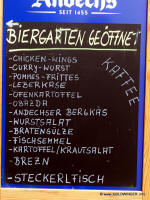 Andechs
SEIT 1455
BIERGARTEN GEÖFFNET
-CHICKEN-WINGS
-CURRY-WURST
-POMMES-FRITTES
-LEBERKÄSE
-OFENKARTOFFEL
-OBAZDA
-ANDECHSER BERGKÄS
-WURSTSALAT
-BRATENSÜLZE
-FISCHSEMMEL
-KARTOFFEL/KRAUTSALAT
-BREZN
-STECKERLFISCH
KAFFEE